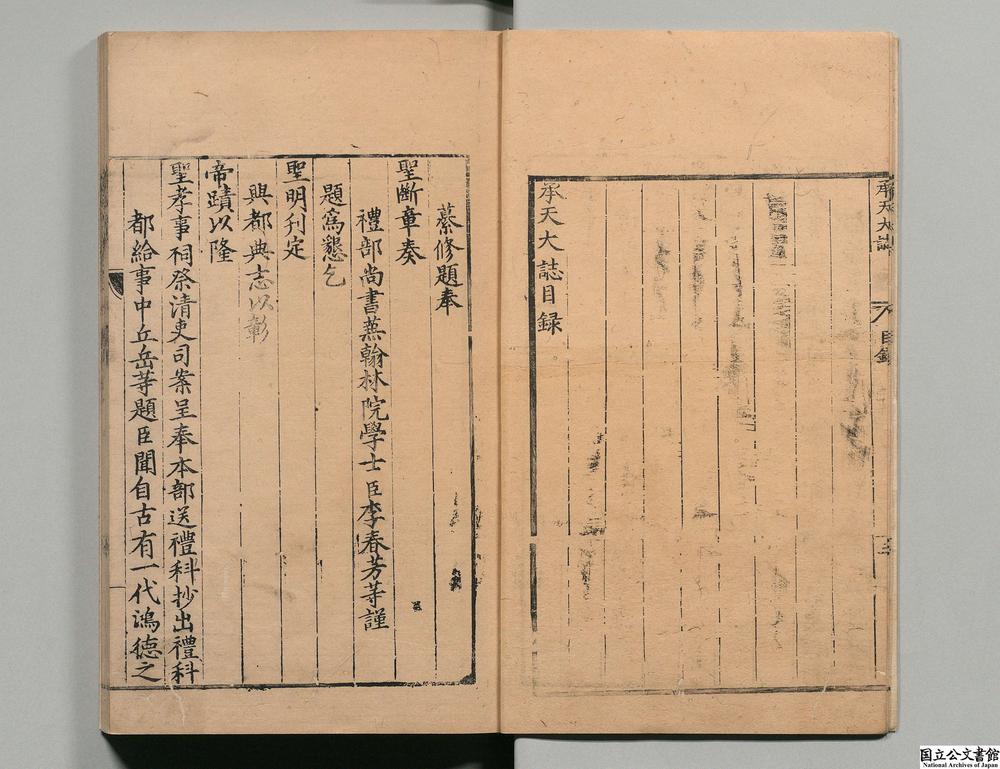 承天大誌
目録
承天大誌目録
纂修題奉
聖斷章奏
禮部尚書兼翰林院學士臣李春芳等謹
題為懇乞
聖明刋定
興都典志以彰
帝蹟以隆
聖孝事祠祭清吏司案呈奉本部送禮科抄出禮科
都給事中丘岳等題臣聞自古有一代鴻德之
国立公文書館
National Archives of Japan